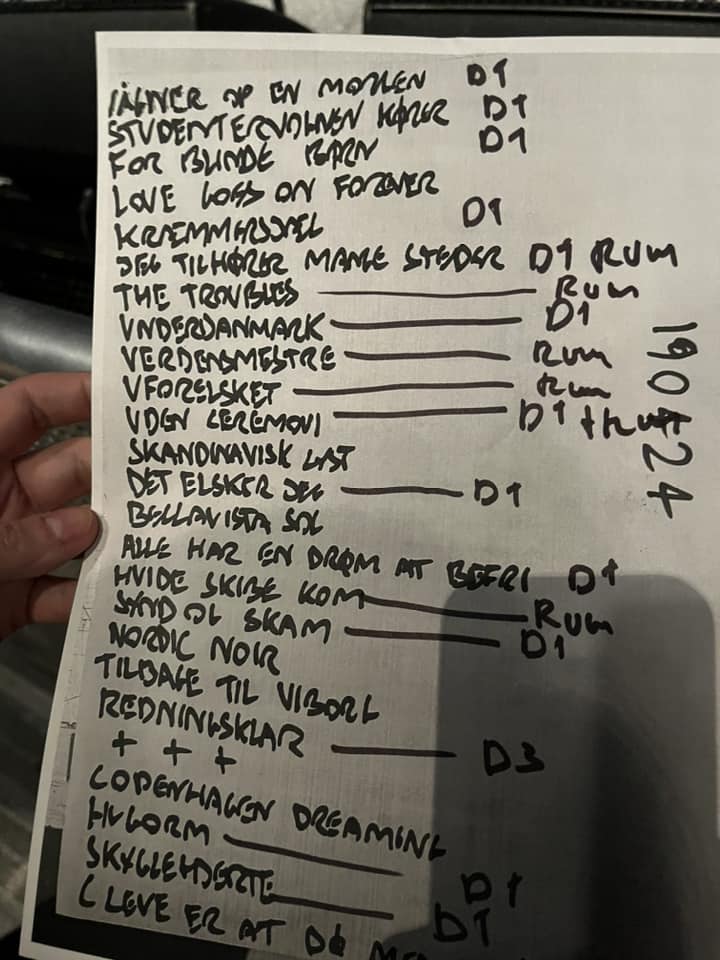 VÅGNER OP EN MORGEN D1
STUDENTERVOGNEN KØRER D1
FOR BLINDE BARN D1
LOVE LOSS ON FOREVER
KRÆMMERSJÆL D1
JEG TILHØRER MANGE STEDER D1 RUM
THE TROUBLES RUM
UNDERDANMARK D1
VERDENSMESTRE RUM
UFORELSKET RUM
UDEN CEREMONI D1 + RUM
SKANDINAVISK LYST
DET ELSKER JEG D1
BELLAVISTA SOL
ALLE HAR EN DRØM AT BEFRI D1
HVIDE SKIBE KOM RUM
SYND OG SKAM D1
NORDIC NOIR
TILBAGE TIL VIBORG
REDNINGSKLAR D3
+ + +
COPENHAGEN DREAMING
HUGORM D1
SKYGGEHJERTE D1
LEVE ER AT DØ
190424